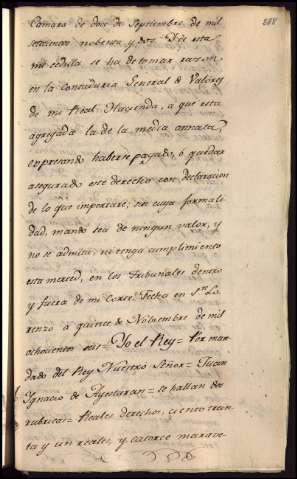 888
Camara de doce de Septiembre de mil
setecientos noventa y dos. De esta
mi cedula se ha de tomar razon
en la Contaduria General de Valores
de mi Real Hacienda, a que esta
agregada la de la media annata,
expresando haberse pagado, ó quedar
asegurado este derecho con declaracion
de lo que importare; sin cuya formali
dad, mando sea de ningun valor, y
no se admita, ni tenga cumplimiento
esta merced, en los Tribunales dentro
y fuera de mi Corte. Fecha en Sn. Lo
renzo á quince de Noviembre de mil
ochocientos seis = Yo el Rey = Por man
dado del Rey Nuestro Señor = Juan
Ignacio de Ayestaran = se hallan dos
rubricas = Reales derechos, ciento trein
ta y un reales, y catorce marave